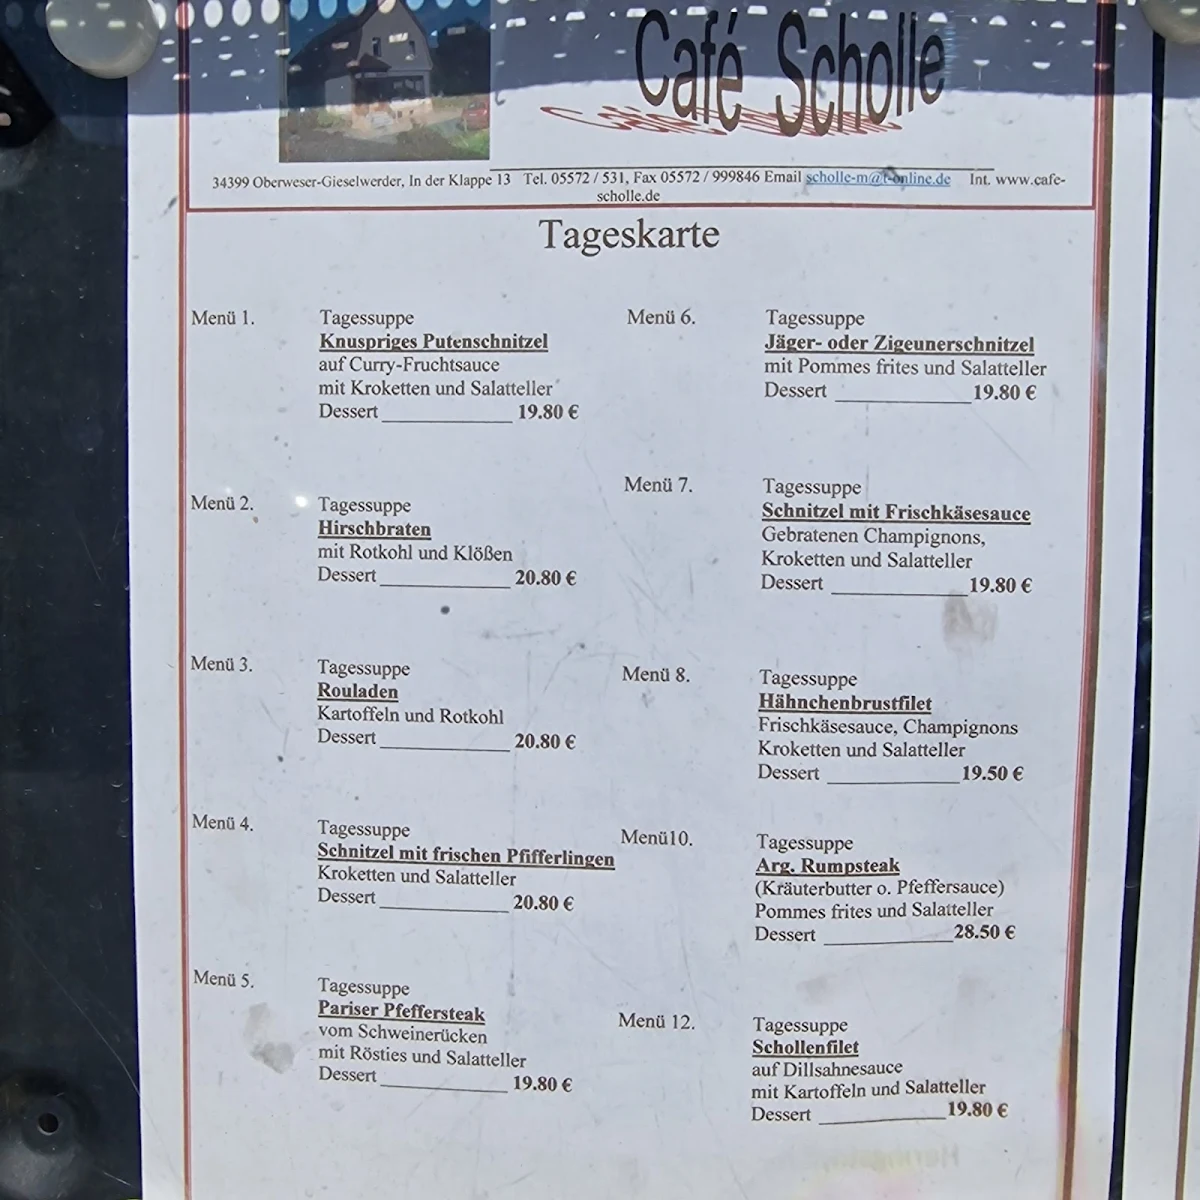 Café Scholle
34399 Oberweser-Gieselwerder, In der Klappe 13 Tel. 05572 / 531, Fax 05572 / 999846 Email scholle-m@t-online.de Int. www.cafe-
scholle.de
Tageskarte
Menü 1.
Tagessuppe
Knuspriges Putenschnitzel
auf Curry-Fruchtsauce
mit Kroketten und Salatteller
Dessert 19.80 €
Menü 2.
Tagessuppe
Hirschbraten
mit Rotkohl und Klößen
Dessert 20.80 €
Menü 3.
Tagessuppe
Rouladen
Kartoffeln und Rotkohl
Dessert 20.80 €
Menü 4.
Tagessuppe
Schnitzel mit frischen Pfifferlingen
Kroketten und Salatteller
Dessert 20.80 €
Menü 5.
Tagessuppe
Pariser Pfeffersteak
vom Schweinerücken
mit Rösties und Salatteller
Dessert 19.80 €
Menü 6.
Tagessuppe
Jäger- oder Zigeunerschnitzel
mit Pommes frites und Salatteller
Dessert 19.80 €
Menü 7.
Tagessuppe
Schnitzel mit Frischkäsesauce
Gebratenen Champignons,
Kroketten und Salatteller
Dessert 19.80 €
Menü 8.
Tagessuppe
Hähnchenbrustfilet
Frischkäsesauce, Champignons
Kroketten und Salatteller
Dessert 19.50 €
Menü10.
Tagessuppe
Arg. Rumpsteak
(Kräuterbutter o. Pfeffersauce)
Pommes frites und Salatteller
Dessert 28.50 €
Menü 12.
Tagessuppe
Schollenfilet
auf Dillsahnesauce
mit Kartoffeln und Salatteller
Dessert 19.80 €